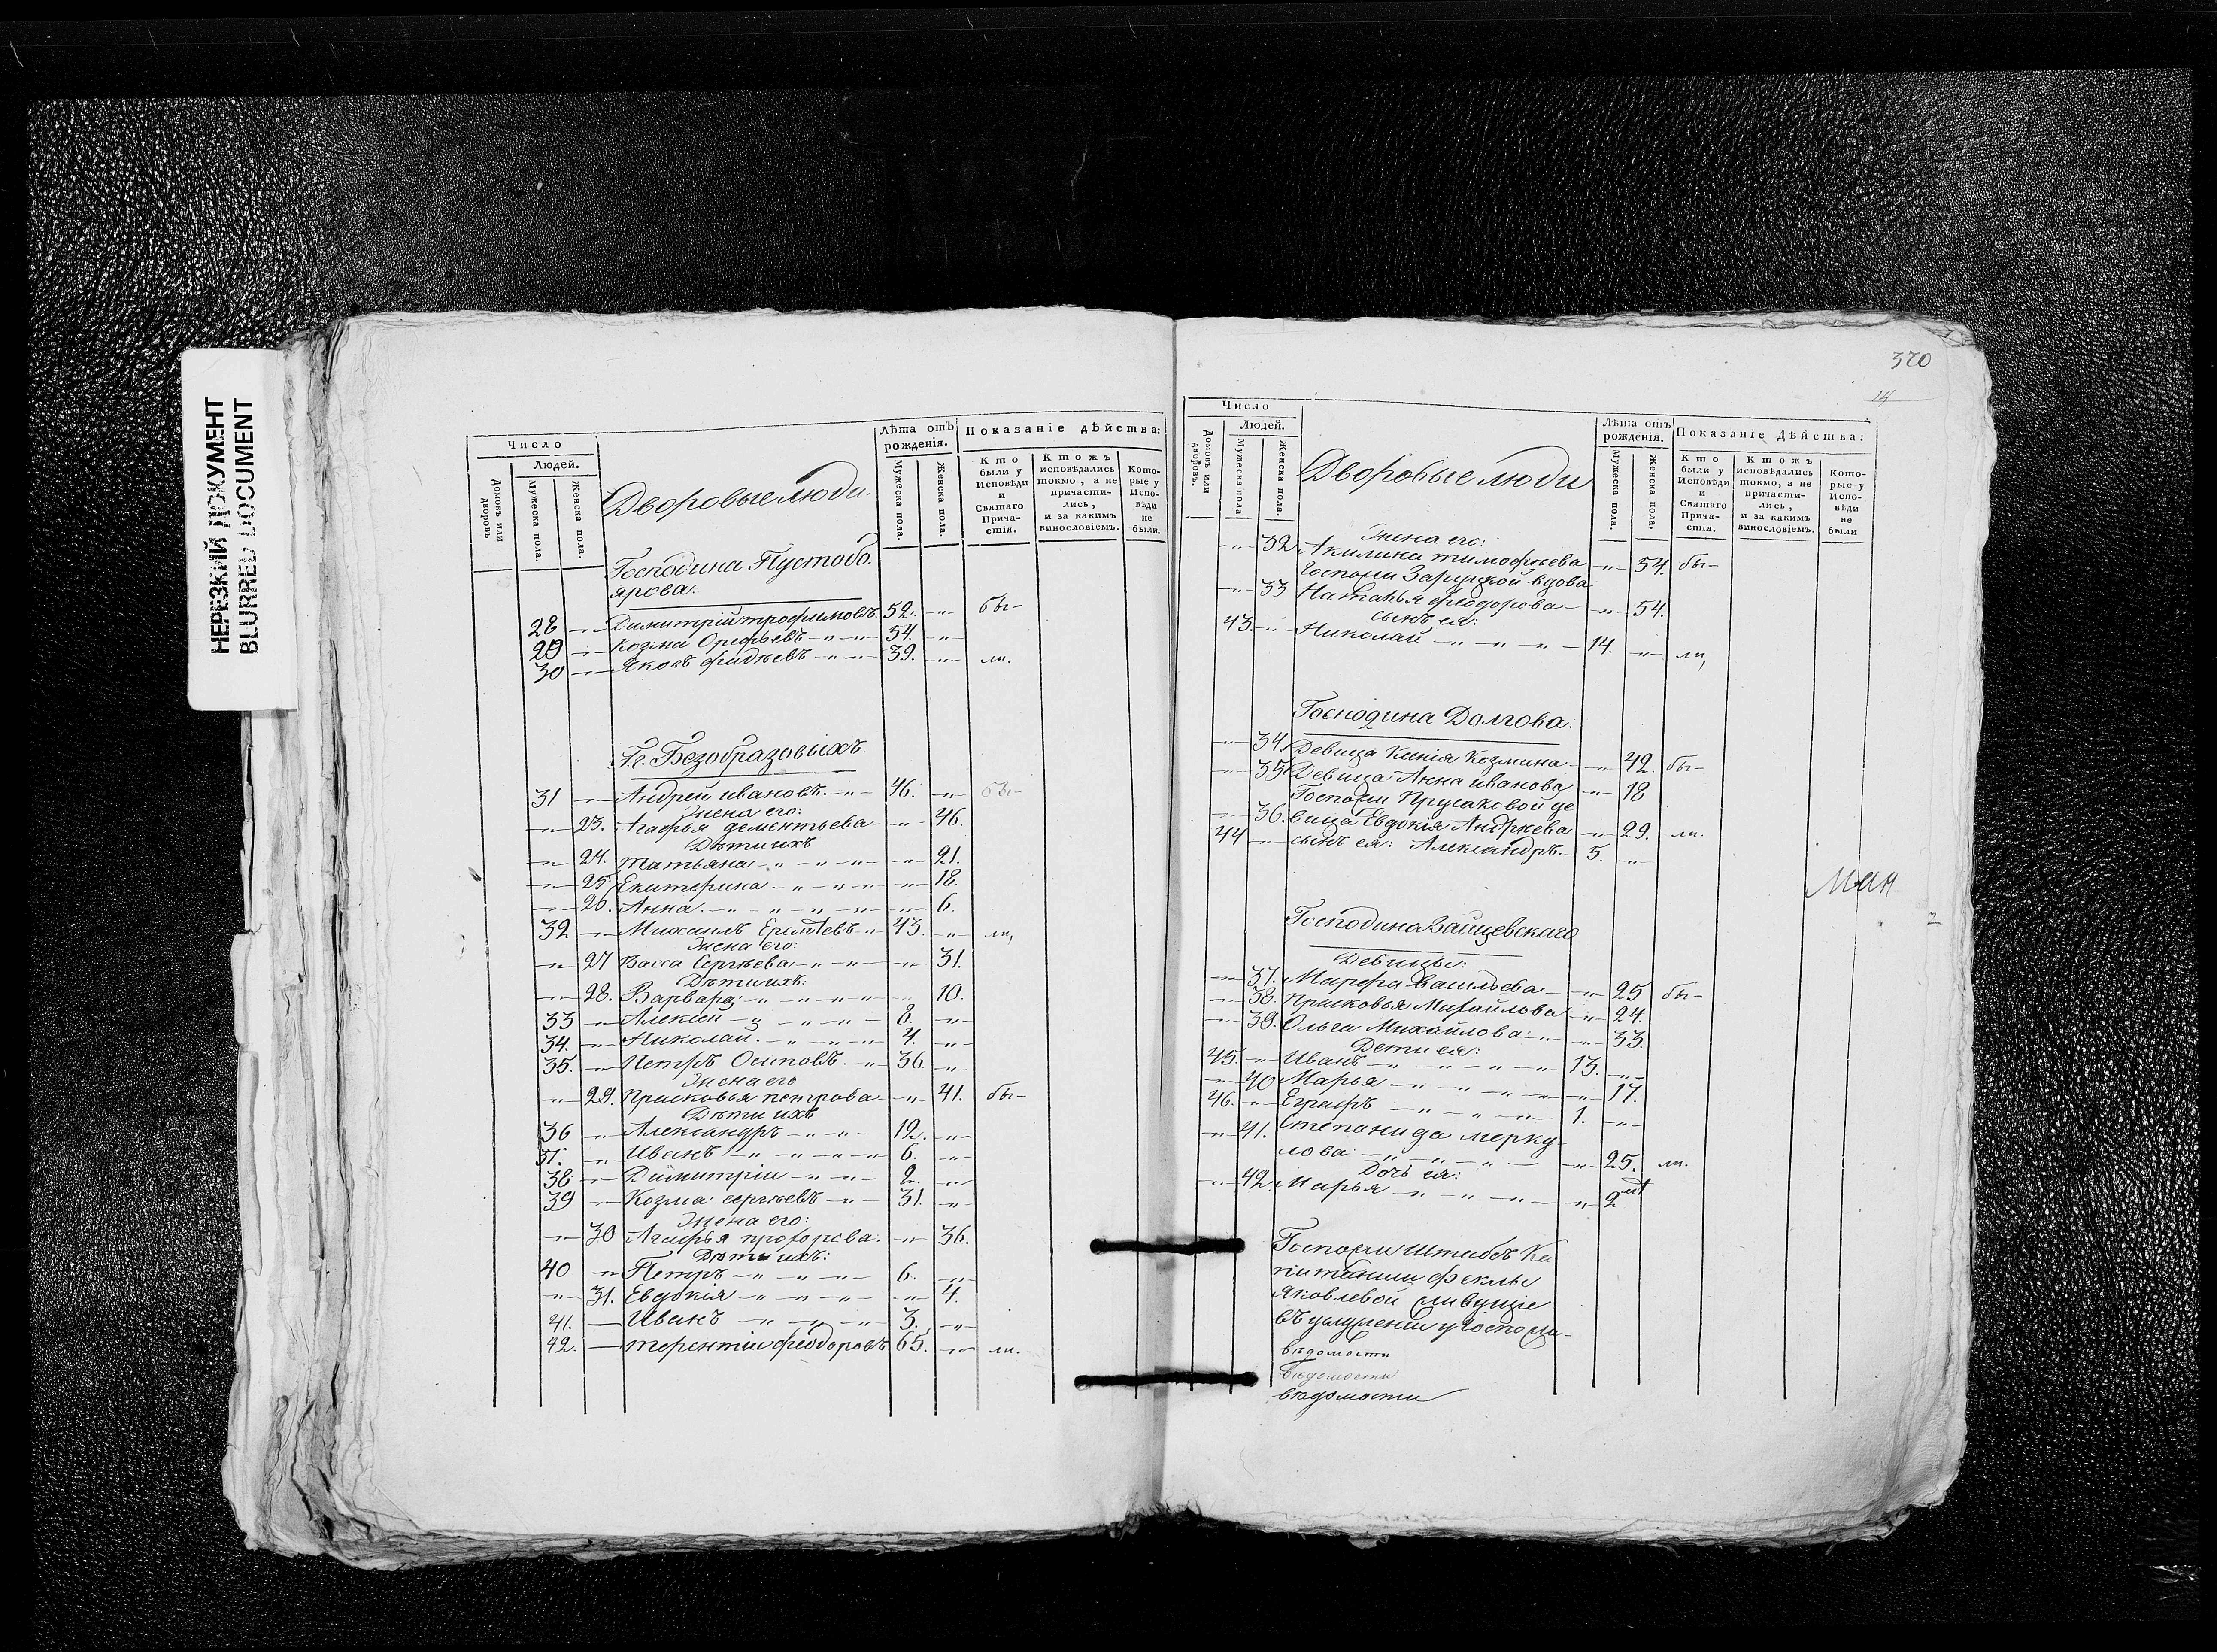 НЕРЕЗКИЙ ДОКУМЕНТ
BLURRED DOCUMENT
Число
Людей.
Домовъ или дворовъ
Мужеска пола.
Женска пола.
Дворовые люди.
Лѣта отъ рожденія.
Мужеска пола.
Женска пола.
Показаніе дѣйства:
Кто были у Исповѣди и Святаго Прича-стія.
Ктожъ исповѣдались токмо, а не причасти-лись, и за какимъ винословіемъ.
Кото-рые у Испо-вѣди не были.
Господина Пустобо.
ярова.
28 Димитрій трофимовъ 52. бы-
29 Козма Орефьевъ 54.
30 Яковъ фидѣевъ 39. ли.
Гг. Безобразовыхъ.
31 Андрей ивановъ 46. бы-
Жена его:
23. Агафья дементьева 46.
Дѣти ихъ
24. татьяна 21.
25. Екатерина 18.
26. Анна 6.
32 Михаилъ 43. ли,
Жена его:
27 Васса Сергѣева 31.
Дѣти ихъ:
28. Варвара 10.
33 Алексій 8.
34. Николай 4.
35. Петръ Осиповъ 36.
Жена его
29. Прасковья петрова 41. бы-
Дѣти ихъ
36 Александръ 12.
37. Иванъ 6.
38 Димитрій 2.
39 Козма сергѣевъ 31.
Жена его:
30 Агафья прохорова 36.
Дѣти ихъ:
40 Петръ 6.
31. Евдокія 4.
41. Иванъ 3.
42. терентій феодоровъ 65. ли.
370
14
Число
Людей.
Домовъ или дворовъ.
Мужеска пола
Женска пола.
Дворовые люди
Лѣта отъ рожденія.
Мужеска пола.
Женска пола.
Показаніе Дѣйства:
Кто были у Исповѣди и Святаго Прича-стія.
Ктожъ исповѣдались токмо, а не причасти-лись, и за какимъ винословіемъ.
Кото-рые у Испо-вѣди не были
Жена его:
32 Акилина тимофѣева 54. бы-
Госпожи Заруцкой вдова
33 Наталья феодорова 54.
сынъ ея:
43. Николай 14. ли,
Господина Долгова.
34. Девица Ксенія Козмина 42. бы-
35 Девица Анна иванова 18
Госпожи Прусаковой де
36. вица Евдокія Андрѣева 29. ли.
44 сынъ ея: Александръ. 5.
Господина Зайцевскаго
Девицы:
37. Марфа Васильева 25 бы-
38. Прасковья Михайлова 24.
39. Ольга Михайлова 33.
Дети ея:
45. Иванъ 13.
40 Марья 17.
46. Еграфъ 1.
41. Степанида мерку
лова 25. ли.
Дочь ея:
42. Марья 2
Госпожи Штабсъ Ка
питанши феклы
Яковлевой
ведомости
Ведомости
ведомости